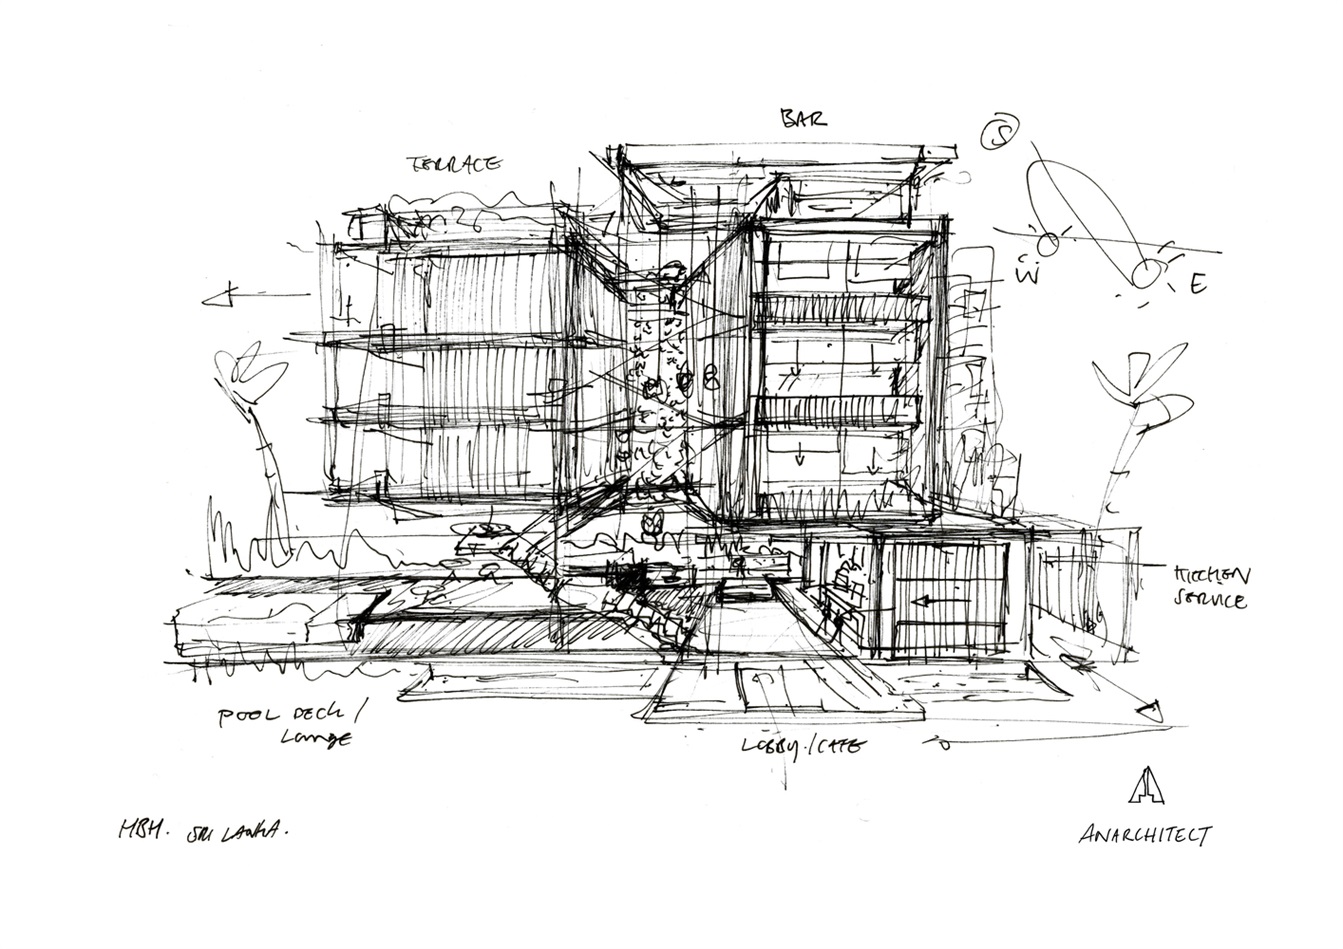 BAR
S
TERRACE
W
E
KITCHEN
SERVICE
POOL DECK /
Lounge
LOBBY./CAFE
HBH. SRI LANKA.
ANARCHITECT